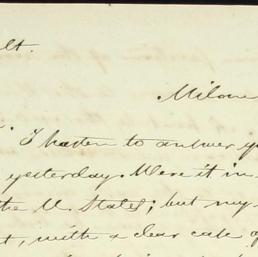 lt.
Milow
I hasten to answer y
yesterday. Were it in
the U. States; but my
t, with a clear case of